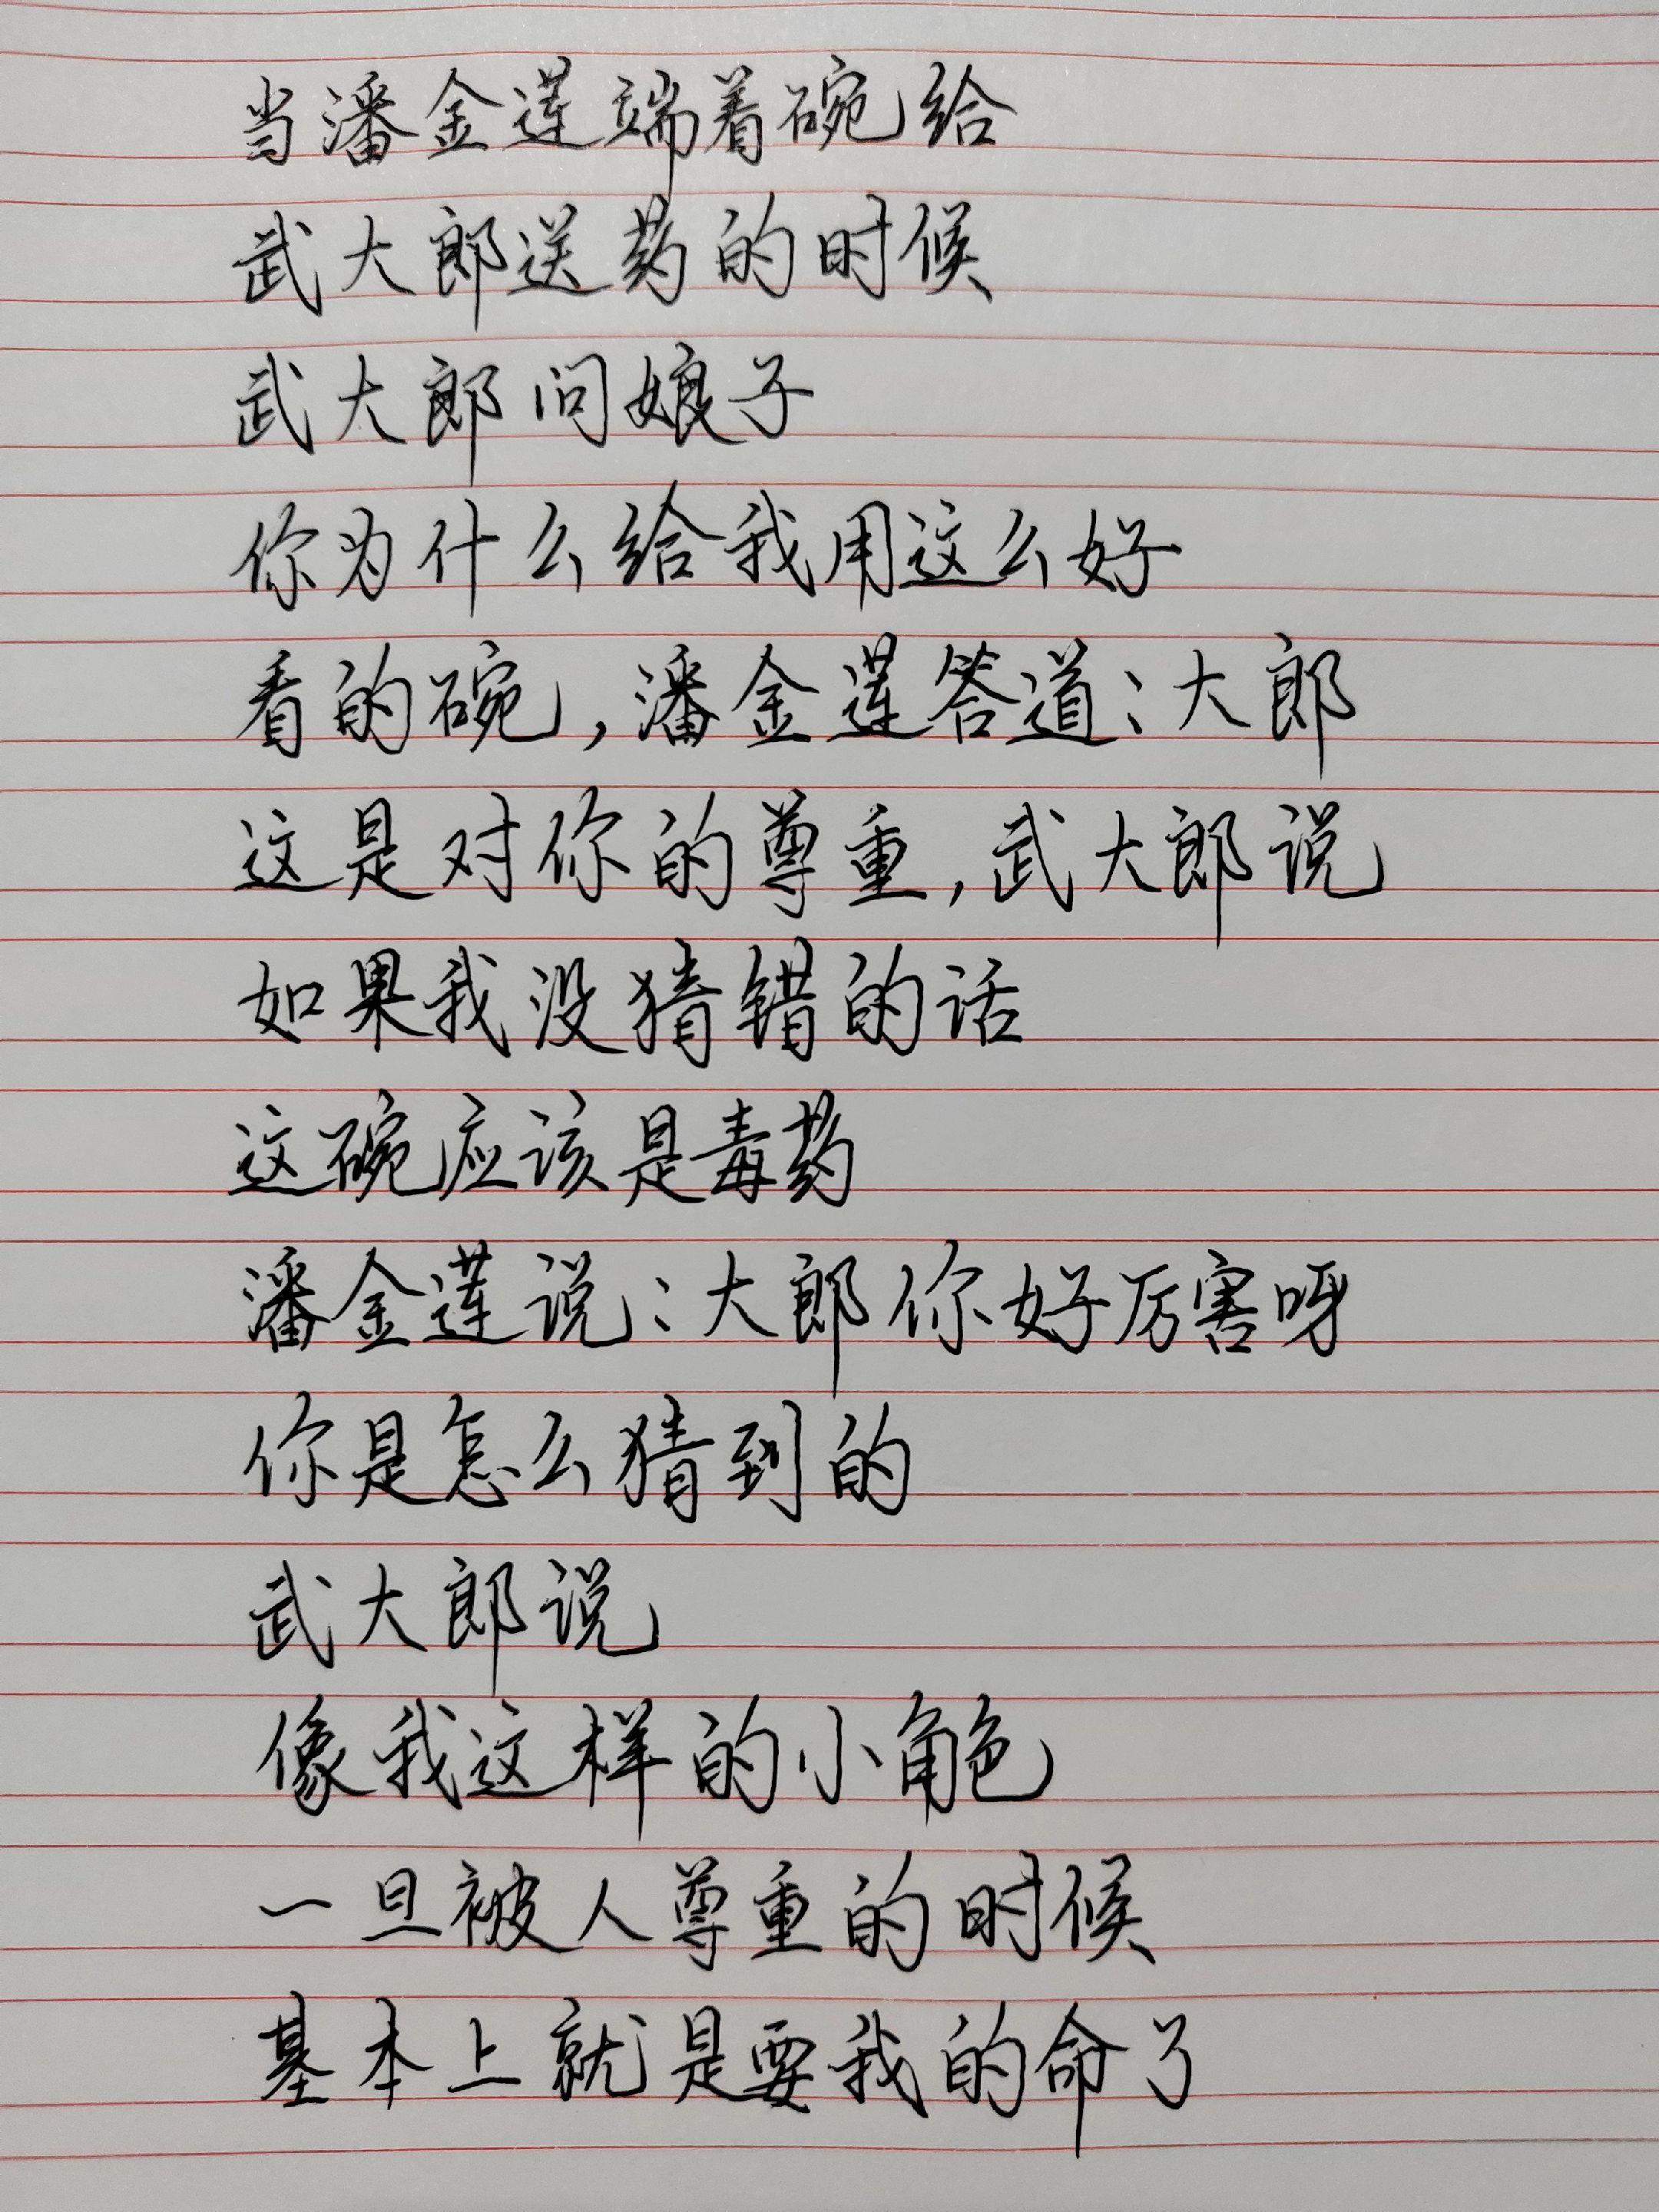 当潘金莲端着碗给
武大郎送药的时候
武大郎问娘子
你为什么给我用这么好
看的碗,潘金莲答道:大郎
这是对你的尊重,武大郎说
如果我没猜错的话
这碗应该是毒药
潘金莲说:大郎你好厉害呀
你是怎么猜到的
武大郎说
像我这样的小角色
一旦被人尊重的时候
基本上就是要我的命了